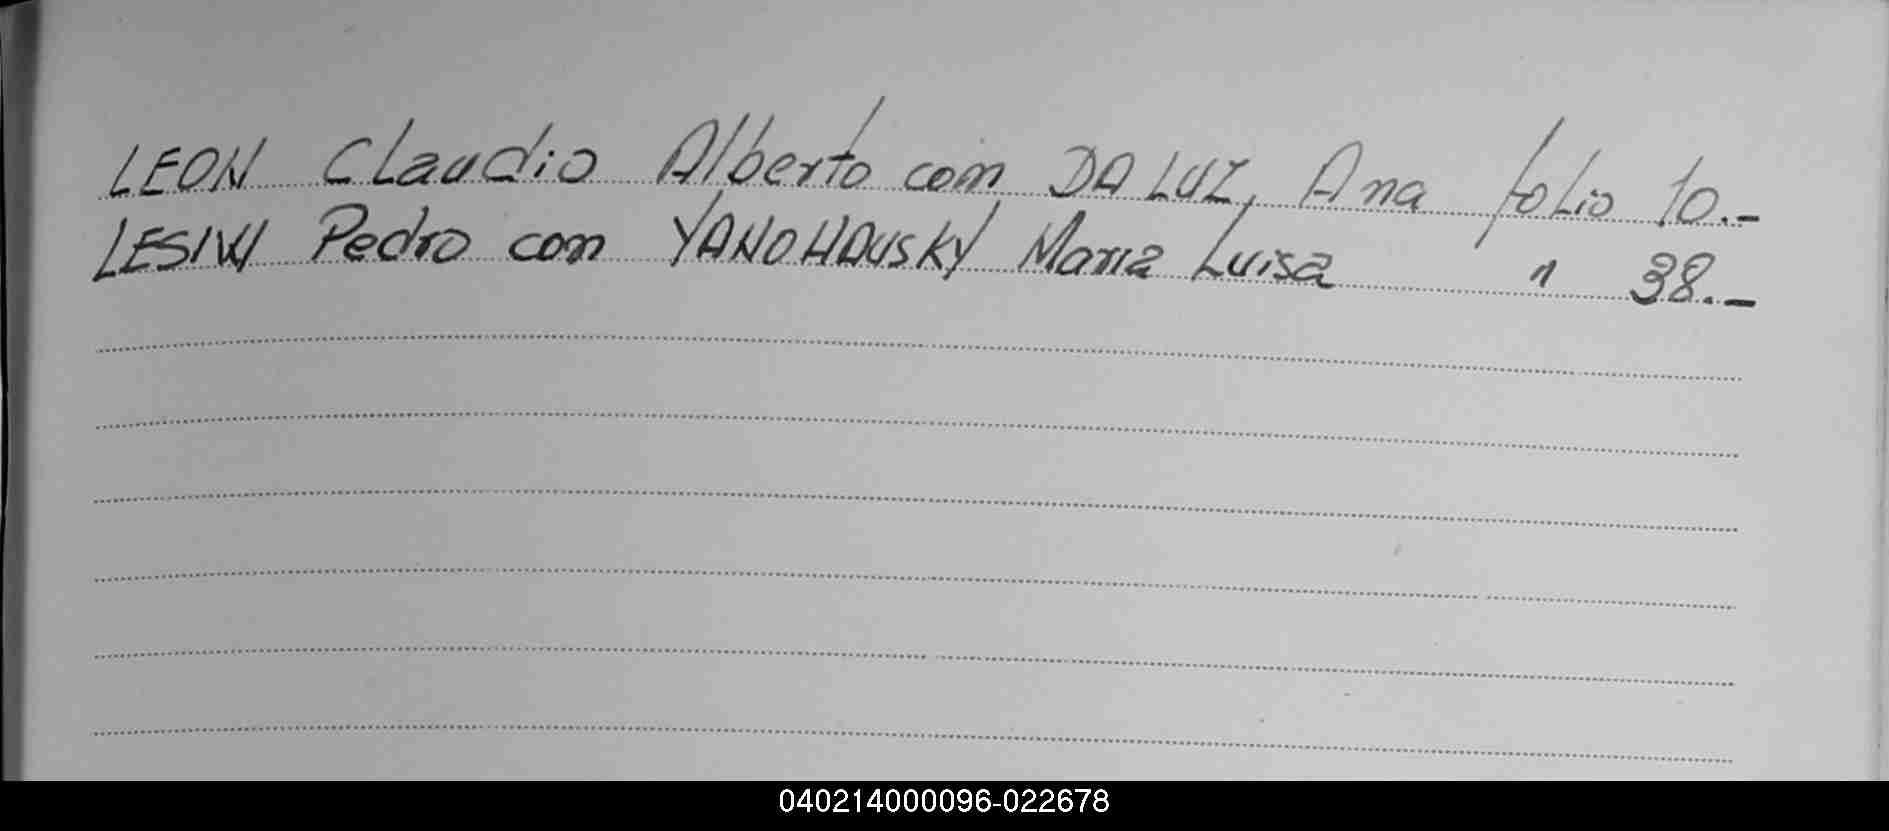 LEON Claudio Alberto com DA LUZ, Ana folio 10.-
LESIW Pedro con YANOHAUSKY Maria Luisa " 38.-
040214000096-022678